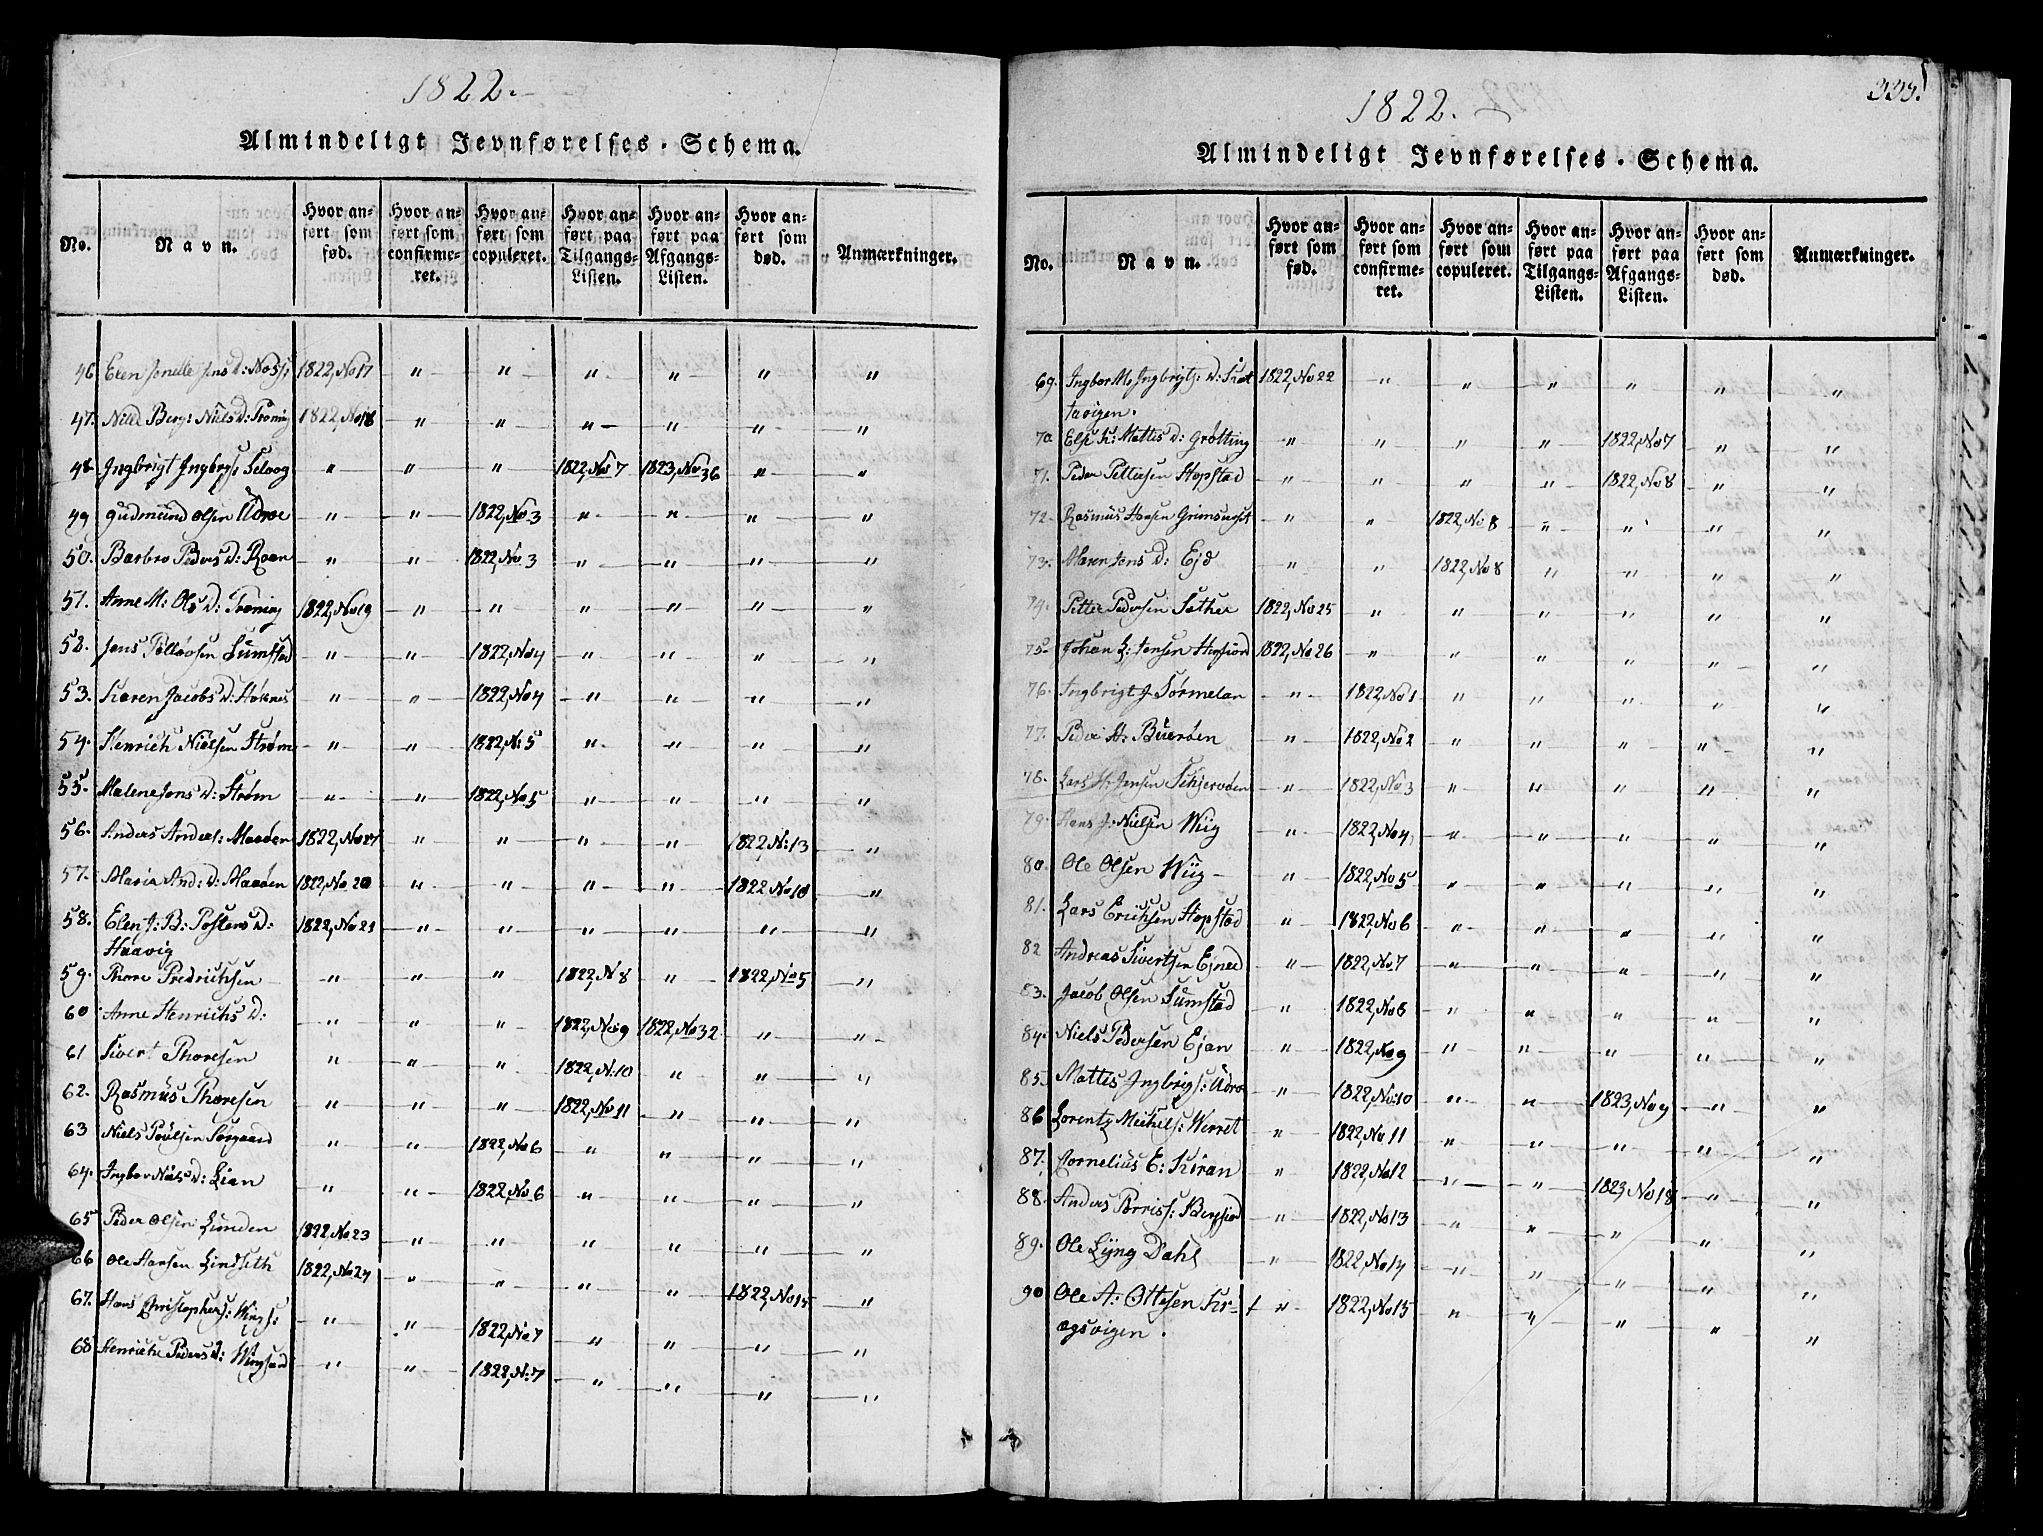 1822.
Almindeligt Jevnførelses-Schema.
No.
Navn.
Hvor anført som fød.
Hvor anført som confirmeret.
Hvor anført som copuleret.
Hvor anført paa Tilgangs-Listen.
Hvor anført paa Afgangs-Listen.
Hvor anført som død.
Anmærkninger.
46 Elen Jens D: 1822, No 17 " " " " " "
47. Niels D: 1822, No 18 " " " " " "
48 Ingbrigt " " " 1822, No 7 1823, No 36 " "
49 Gudmund Olsen Udroe " " 1822, No 3 " " " "
50. Barbro Peders D: Roan " " 1822, No 3 " " " "
51. Anne M: Ols D: 1822, No 19 " " " " " "
52. Jens Sumstad " " 1822, No 4 " " " "
53. Karen Jacobs D: " " 1822, No 4 " " " "
54. Henrich Nielsen Strøm " " 1822, N: 5 " " " "
55. Malene Jens D: Strøm " " 1822, No 5 " " " "
56. Anders Anders: Maaøen 1822, No 27 " " " " 1822, N: 13 "
57. Maria And: D: Maaøen 1822, No 20 " " " " 1822 No 10 "
58. Elen J: B: D: 1822, No 21 " " " " " "
Haavig
59. Thore Fredrichsen " " " 1822, N 8 " 1822, No 5 "
60 Anne Henrichs D: " " " 1822, No 9 1822, No 32 " "
61 Sivert Thoresen " " " 1822, N: 10 " " "
62. Rasmus Thoresen " " " 1822, No 11 " " "
63 Niels Poulsen Sørgaard " " 1822, No 6 " " " "
64. Ingbor Niels D: Lian " " 1822, No 6 " " " "
65 Peder Olsen Lunden 1822, No 23 " " " " " "
66 Ole Hansen Lindseth 1822, No 24 " " " " 1822, No 15 "
67. Hans Christophers: " " 1822, No 7 " " " "
68 Henriche Peders D: " " 1822, N: 7 " " " "
1822.
335.
Almindeligt Jevnførelses-Schema.
No.
Navn.
Hvor anført som fød.
Hvor anført som confirmeret.
Hvor anført som copuleret.
Hvor anført paa Tilgangs-Listen.
Hvor anført paa Afgangs-Listen.
Hvor anført som død.
Anmærkninger.
69. Ingbor M: Ingbrigts: D: 1822, No 22 " " " " " "
tavigen.
70 Mattis D: Grøtting " " " " 1822, No 7 " "
71. Peder Pettersen Hopstad " " " " 1822, No 8 " "
72. Rasmus Hansen " " 1822, No 8 " " " "
73. Maren Jens D: " " 1822, No 8 " " " "
74. Petter Pedersen Sæther 1822, No 25 " " " " " "
75. Johan L: Jensen 1822, No 26 " " " " " "
76. Ingbrigt J Sørmelan " 1822, No 1 " " " " "
77. Peder A: Buerøen " 1822, No 2 " " " " "
78. Lars H: Jensen Schjervøen " 1822, No 3 " " " " "
79. Hans J: Nielsen Wiig " 1822, No 4, " " " " "
80. Ole Olsen Wiig " 1822, No 5 " " " " "
81. Lars Erichsen Hopstad " 1822, No 6 " " " " "
82 Andreas Sivertsen " 1822, No 7 " " " " "
83. Jacob Olsen Sumstad " 1822, No 8 " " " " "
84. Niels Pedersen " 1822, No 9 " " " " "
85. Mattis Ingbrigs: Udro " 1822, No 10 " " 1823, No 9 " "
86 Lorentz Michels: Werret " 1822, No 11 " " " " "
87. Cornelius E: Kiran " 1822, No 12 " " 1823, No 18 " "
88. Anders " 1822, No 13 " " " " "
89. Ole Lyng Dahl " 1822, No 14 " " " " "
90 Ole A: Ottesen Kr- " 1822, No 15 " " " " "
ogsvigen.